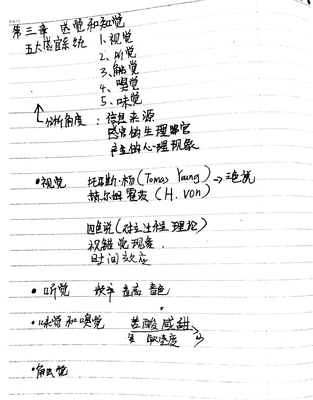 第三章 感觉和知觉
五大感官系统 1、视觉
2、听觉
3、触觉
4、嗅觉
5、味觉
分析角度：信息来源
感官的生理器官
产生的心理现象
•视觉 托马斯·杨(Tomas Young)→三色说
赫尔姆霍茨(H. von)
四色说(对立过程理论)
视错觉现象
时间效应
•听觉 频率 音高 音色
•味觉和嗅觉 苦酸咸甜
敏感度
•触觉